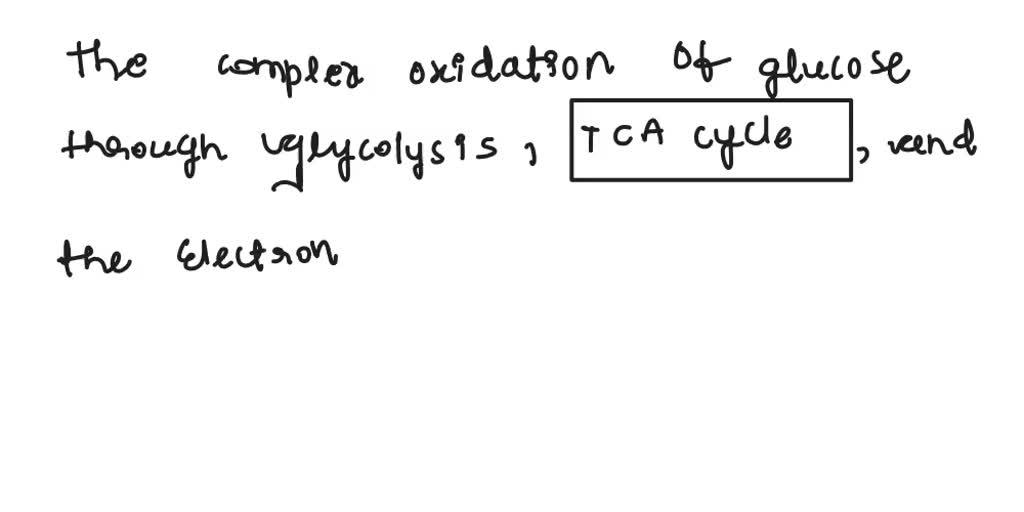 the complex oxidation of glucose
through glycolysis, TCA cycle, and
the Electron